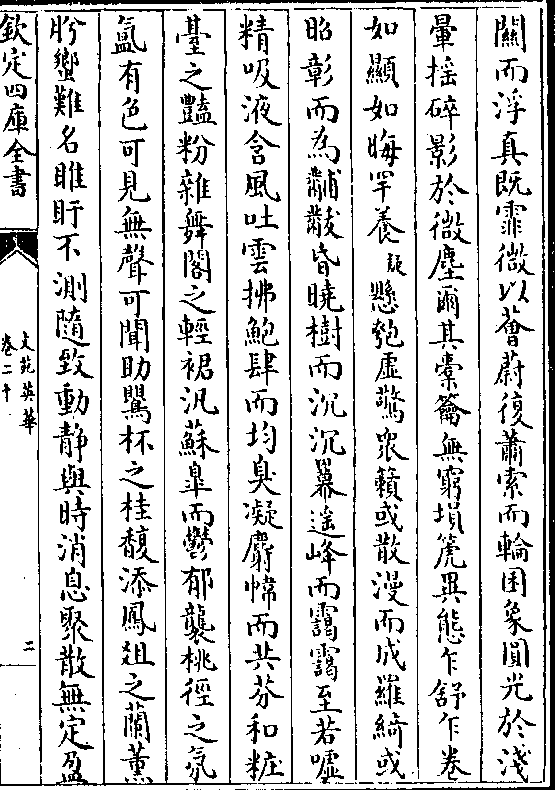 闗而浮真既霏微以薈蔚復蕭索而輪囷象圓光於淺
暈揺碎影於微塵爾其槖籥無窮塤箎異態乍舒乍卷
如顯如晦罕養疑懸匏虚驚衆籟或散漫而成羅綺或
昭彰而為黼黻昏曉樹而沉沉羃遥峰而靄靄至若嘘
精吸液含風吐雲拂鮑肆而均臭凝麝幃而共芬和粧
臺之豔粉雜舞閣之輕裙汎蘇臯而鬱郁襲桃徑之氛
氲有色可見無聲可聞助鸎杯之桂馥添鳳俎之蘭薫
肸蠁難名睢盱不測隨致動静與時消息聚散無定盈
欽定四庫全書
文苑英華
卷二十
二